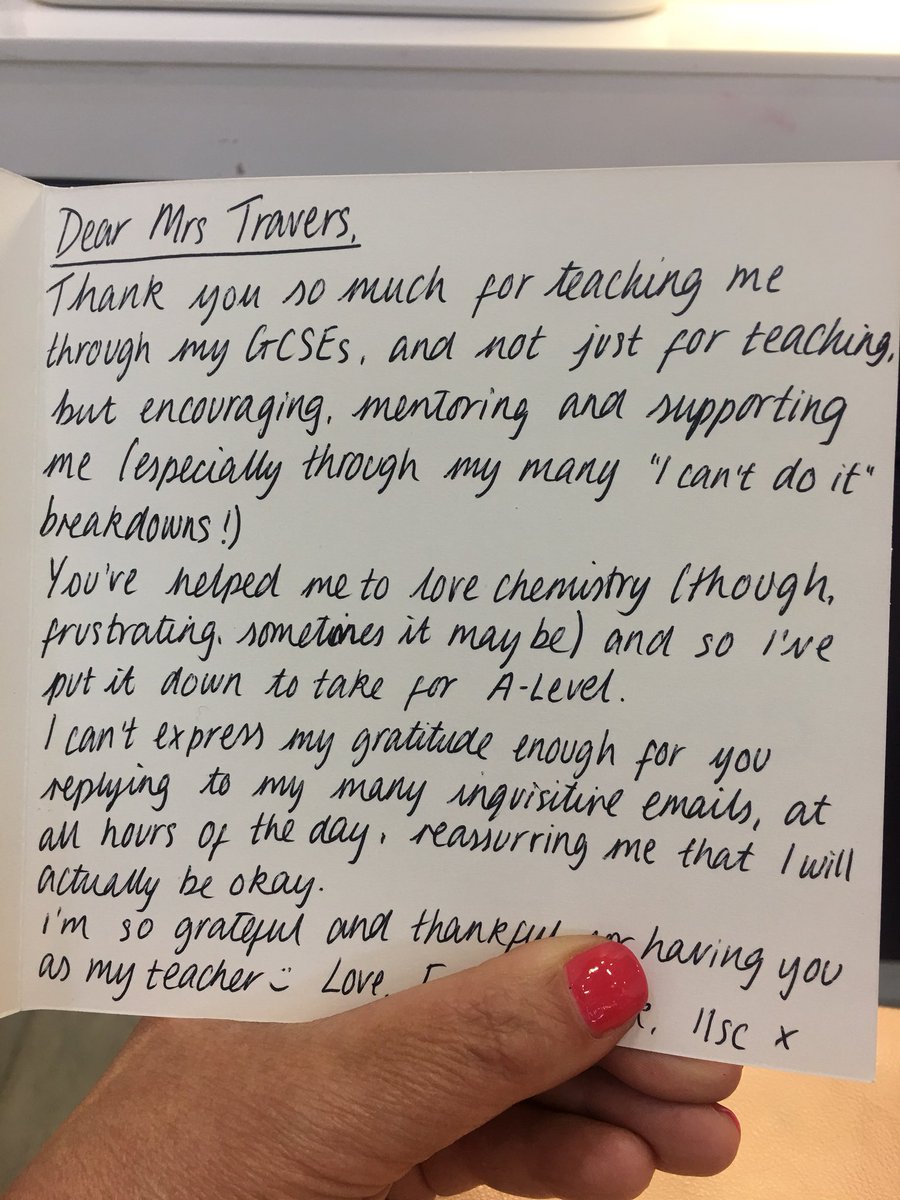 Dear Mrs Travers,
Thank you so much for teaching me
through my GCSEs, and not just for teaching,
but encouraging, mentoring and supporting
me (especially through my many "I can't do it"
breakdowns!)
You've helped me to love chemistry (though,
frustrating, sometimes it may be) and so I've
put it down to take for A-Level.
I can't express my gratitude enough for you
replying to my many inquisitive emails, at
all hours of the day, reassurring me that I will
actually be okay.
I'm so grateful and thankful for having you
as my teacher :) Love,
11SC x